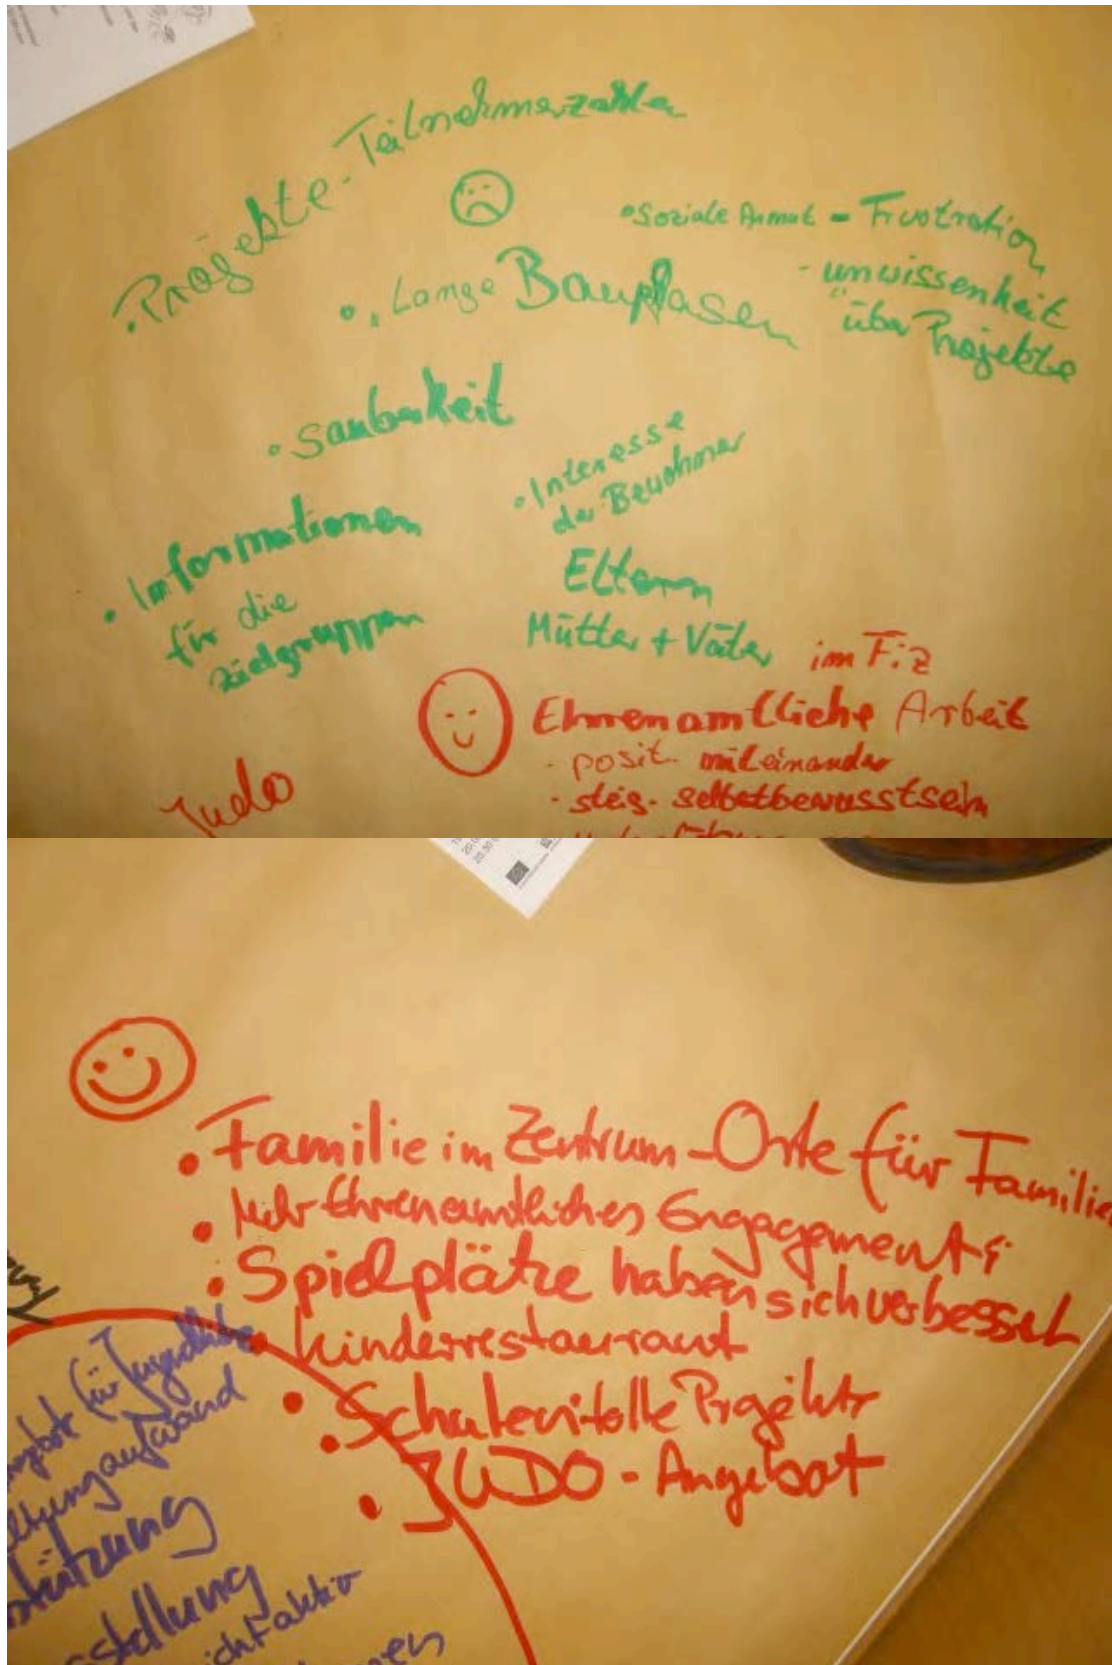 • Projekte - Teilnehmerzahlen
• soziale Armut - Frustration
- unwissenheit
über Projekte
• Lange Bauphasen
• Sauberkeit
• Interesse
der Bewohner
Eltern
Mütter + Väter
• Informationen
für die
Zielgruppen
im Fiz
Ehrenamtliche Arbeit
- posit. miteinander
- steig. selbstbewusstsein
Judo
• Familie im Zentrum - Orte für Familie
• Mehr Ehrenamtliches Engagement
• Spielplätze haben sich verbessert
• Kinderrestaurant
• Schule: tolle Projekte
• JUDO - Angebot
für Jugendliche
aufwand
stützung
stellung
nicht aktiv